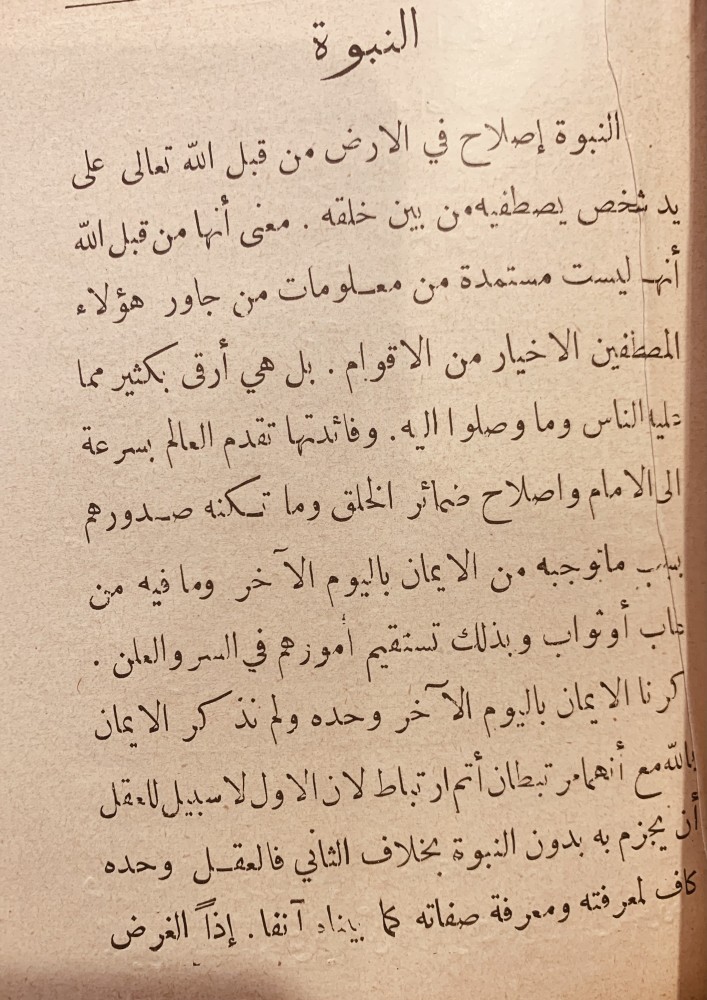 النبوة
النبوة إصلاح في الارض من قبل الله تعالى على
يد شخص يصطفيه من بين خلقه . معنى أنها من قبل الله
أنها ليست مستمدة من معلومات من جاور هؤلاء
المصطفين الاخيار من الاقوام . بل هي أرقى بكثير مما
عليه الناس وما وصلوا اليه . وفائدتها تقدم العالم بسرعة
الى الامام واصلاح ضمائر الخلق وما تكنه صدورهم
بسبب ماتوجبه من الايمان باليوم الآخر وما فيه من
أوثواب وبذلك تستقيم أمورهم في السر والعلن .
كرنا الايمان باليوم الآخر وحده ولم نذكر الايمان
بالله مع أنهما مرتبطان أتم ارتباط لان الاول لا سبيل للعقل
أن يجزم به بدون النبوة بخلاف الثاني فالعقل وحده
كاف لمعرفته ومعرفة صفاته كما بيناه آنفا . إذاً الغرض